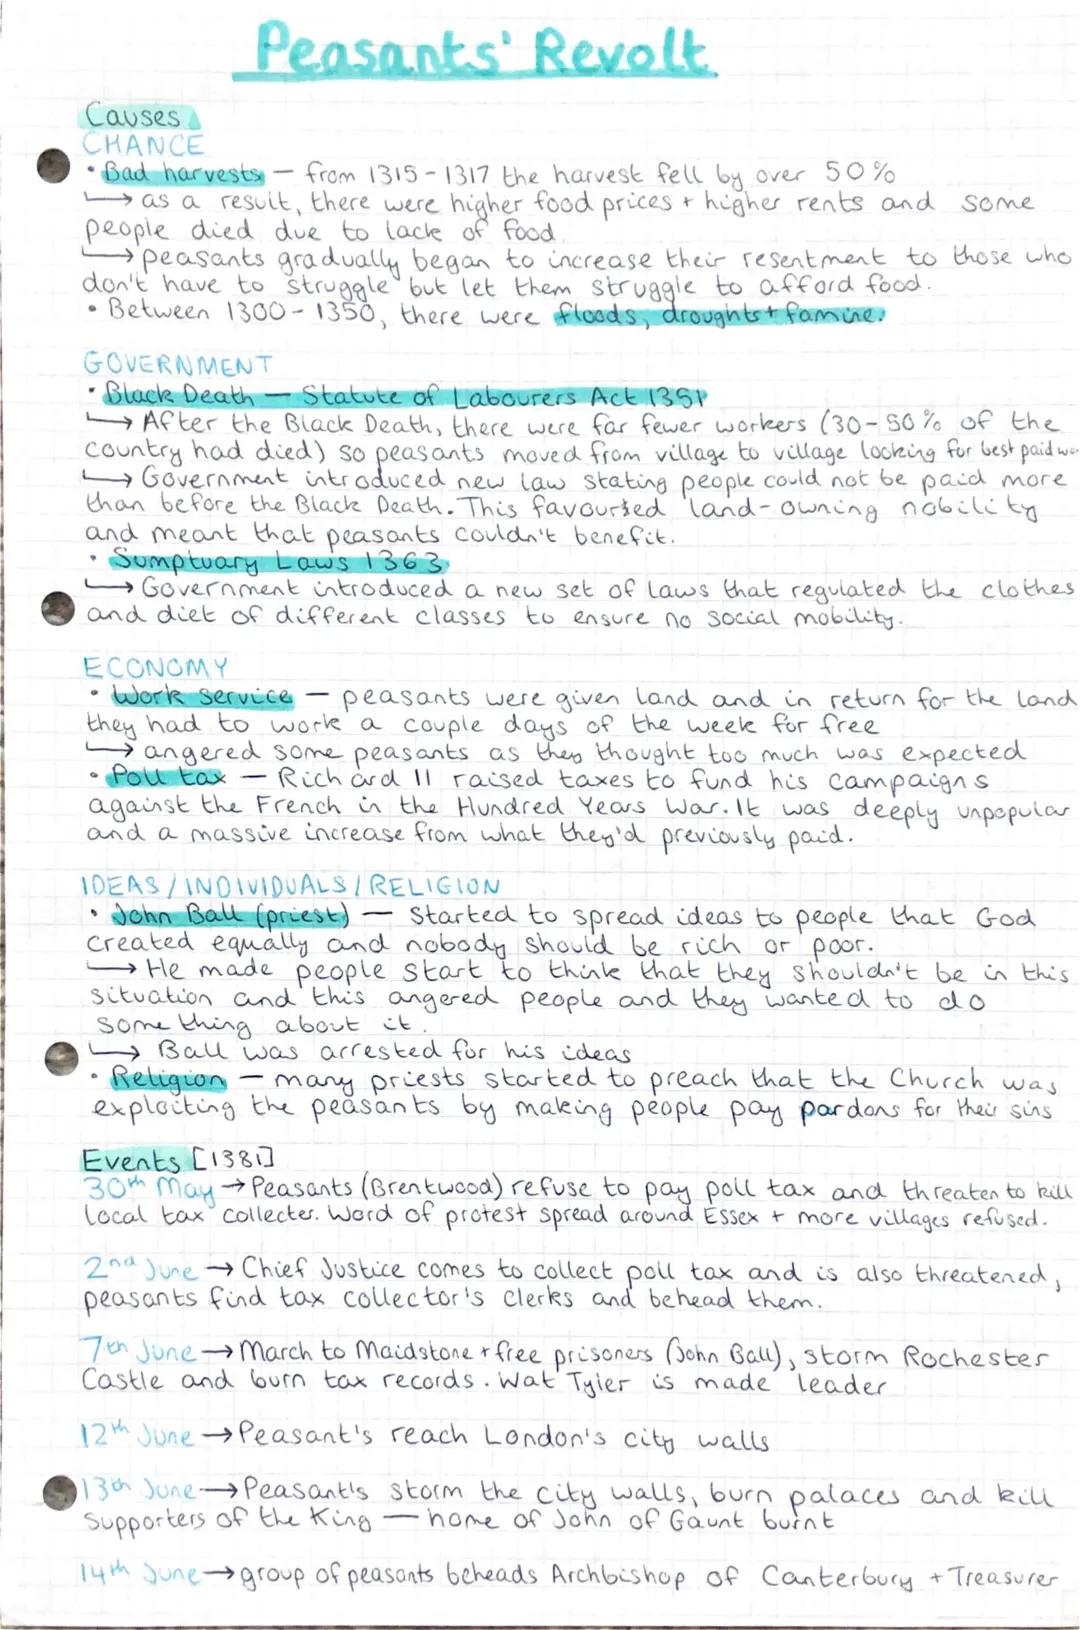 Peasants' Revolt
Causes
CHANCE
• Bad harvests — from 1315-1317 the harvest fell by over 50%
↳ as a result, there were higher food prices + higher rents and some
people died due to lack of food.
↳ peasants gradually began to increase their resentment to those who
don't have to struggle but let them struggle to afford food.
• Between 1300-1350, there were floods, droughts + famine.
GOVERNMENT
• Black Death — Statute of Labourers Act 1351
↳ After the Black Death, there were far fewer workers (30-50% of the
country had died) so peasants moved from village to village looking for best paid wor
↳ Government introduced new law stating people could not be paid more
than before the Black Death. This favoured land-owning nobility
and meant that peasants couldn't benefit.
• Sumptuary Laws 1363
↳ Government introduced a new set of laws that regulated the clothes
and diet of different classes to ensure no social mobility.
ECONOMY
• Work service — peasants were given land and in return for the land
they had to work a couple days of the week for free
↳ angered some peasants as they thought too much was expected
• Poll tax — Richard II raised taxes to fund his campaigns
against the French in the Hundred Years War. It was deeply unpopular
and a massive increase from what they'd previously paid.
IDEAS/INDIVIDUALS/RELIGION
• John Ball (priest) — Started to spread ideas to people that God
created equally and nobody should be rich or poor.
↳ He made people start to think that they shouldn't be in this
situation and this angered people and they wanted to do
something about it.
↳ Ball was arrested for his ideas
• Religion — many priests started to preach that the Church was
exploiting the peasants by making people pay pardons for their sins
Events [1381]
30th May → Peasants (Brentwood) refuse to pay poll tax and threaten to kill
local tax collecter. Word of protest spread around Essex + more villages refused.
2nd June → Chief Justice comes to collect poll tax and is also threatened,
peasants find tax collector's clerks and behead them.
7th June → March to Maidstone + free prisoners (John Ball), storm Rochester
Castle and burn tax records. Wat Tyler is made leader
12th June → Peasant's reach London's city walls
13th June → Peasant's storm the city walls, burn palaces and kill
supporters of the King — home of John of Gaunt burnt
14th June → group of peasants beheads Archbishop of Canterbury + Treasurer